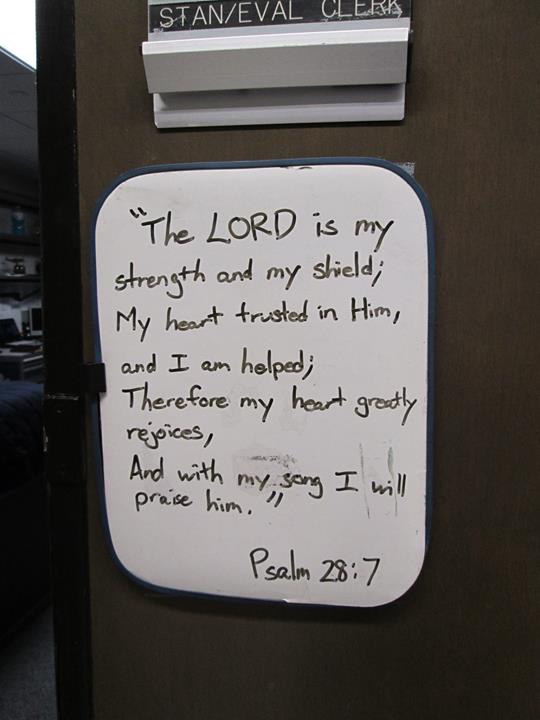 STAN/EVAL CLERK
"The LORD is my
strength and my shield;
My heart trusted in Him,
and I am helped;
Therefore my heart greatly
rejoices,
And with my song I will
praise him."
Psalm 28:7